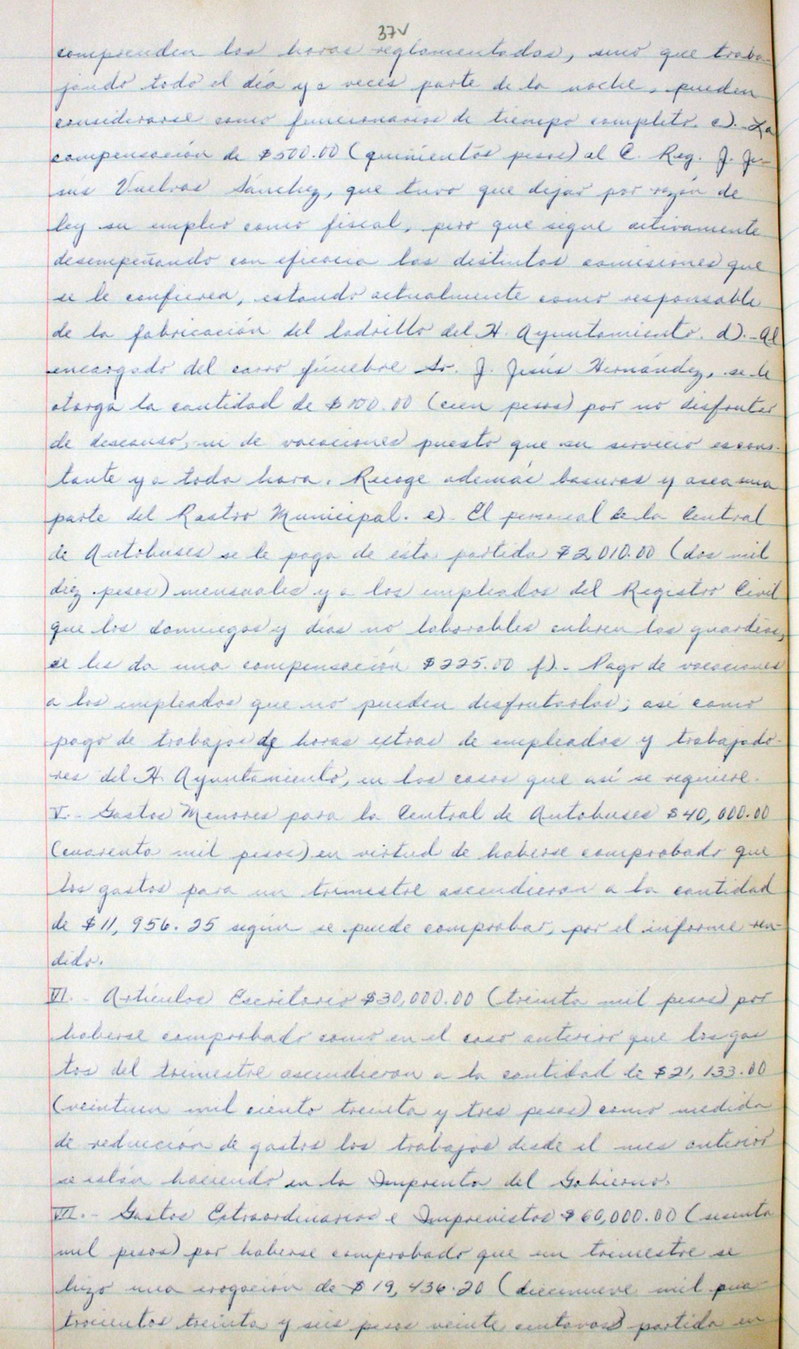 37v
comprenden las horas reglamentadas, sino que traba-
jando todo el día y a veces parte de la noche, pueden
considerarse como funcionarios de tiempo completo. c).- La
compensación de $500.00 (quinientos pesos) al C. Reg. J. Je-
sús Vuelvas Sánchez, que tuvo que dejar por razón de
ley su empleo como fiscal, pero que sigue activamente
desempeñando con eficacia las distintas comisiones que
se le confieren, estando actualmente como responsable
de la fabricación del ladrillo del H. Ayuntamiento. d).- Al
encargado del carro fúnebre Sr. J. Jesús Hernández, se le
otorga la cantidad de $100.00 (cien pesos) por no disfrutar
de descanso, ni de vacaciones puesto que su servicio es cons-
tante y a toda hora. Recoge además basuras y asea una
parte del Rastro Municipal. e). El personal de la Central
de Autobuses se le paga de esta partida $2,010.00 (dos mil
diez pesos) mensuales y a los empleados del Registro Civil
que los domingos y días no laborables cubren las guardias,
se les da una compensación $225.00 f).- Pago de vacaciones
a los empleados que no pueden disfrutarlas; así como
pago de trabajos de horas extras de empleados y trabajado-
res del H. Ayuntamiento, en los casos que así se requiere.
V.- Gastos Menores para la Central de Autobuses $40,000.00
(cuarenta mil pesos) en virtud de haberse comprobado que
los gastos para un trimestre ascendieron a la cantidad
de $11,956.25 según se puede comprobar, por el informe ren-
dido.
VI.- Artículos Escritorio $30,000.00 (treinta mil pesos) por
haberse comprobado como en el caso anterior que los gas
tos del trimestre ascendieron a la cantidad de $21,133.00
(veintiun mil ciento treinta y tres pesos) como medida
de reducción de gastos los trabajos desde el mes anterior
se están haciendo en la Imprenta del Gobierno.
VII.- Gastos Extraordinarios e Imprevistos $60,000.00 (sesenta
mil pesos) por haberse comprobado que un trimestre se
hizo una erogación de $19,436.20 (diecinueve mil cua-
trocientos treinta y seis pesos veinte centavos) partida en